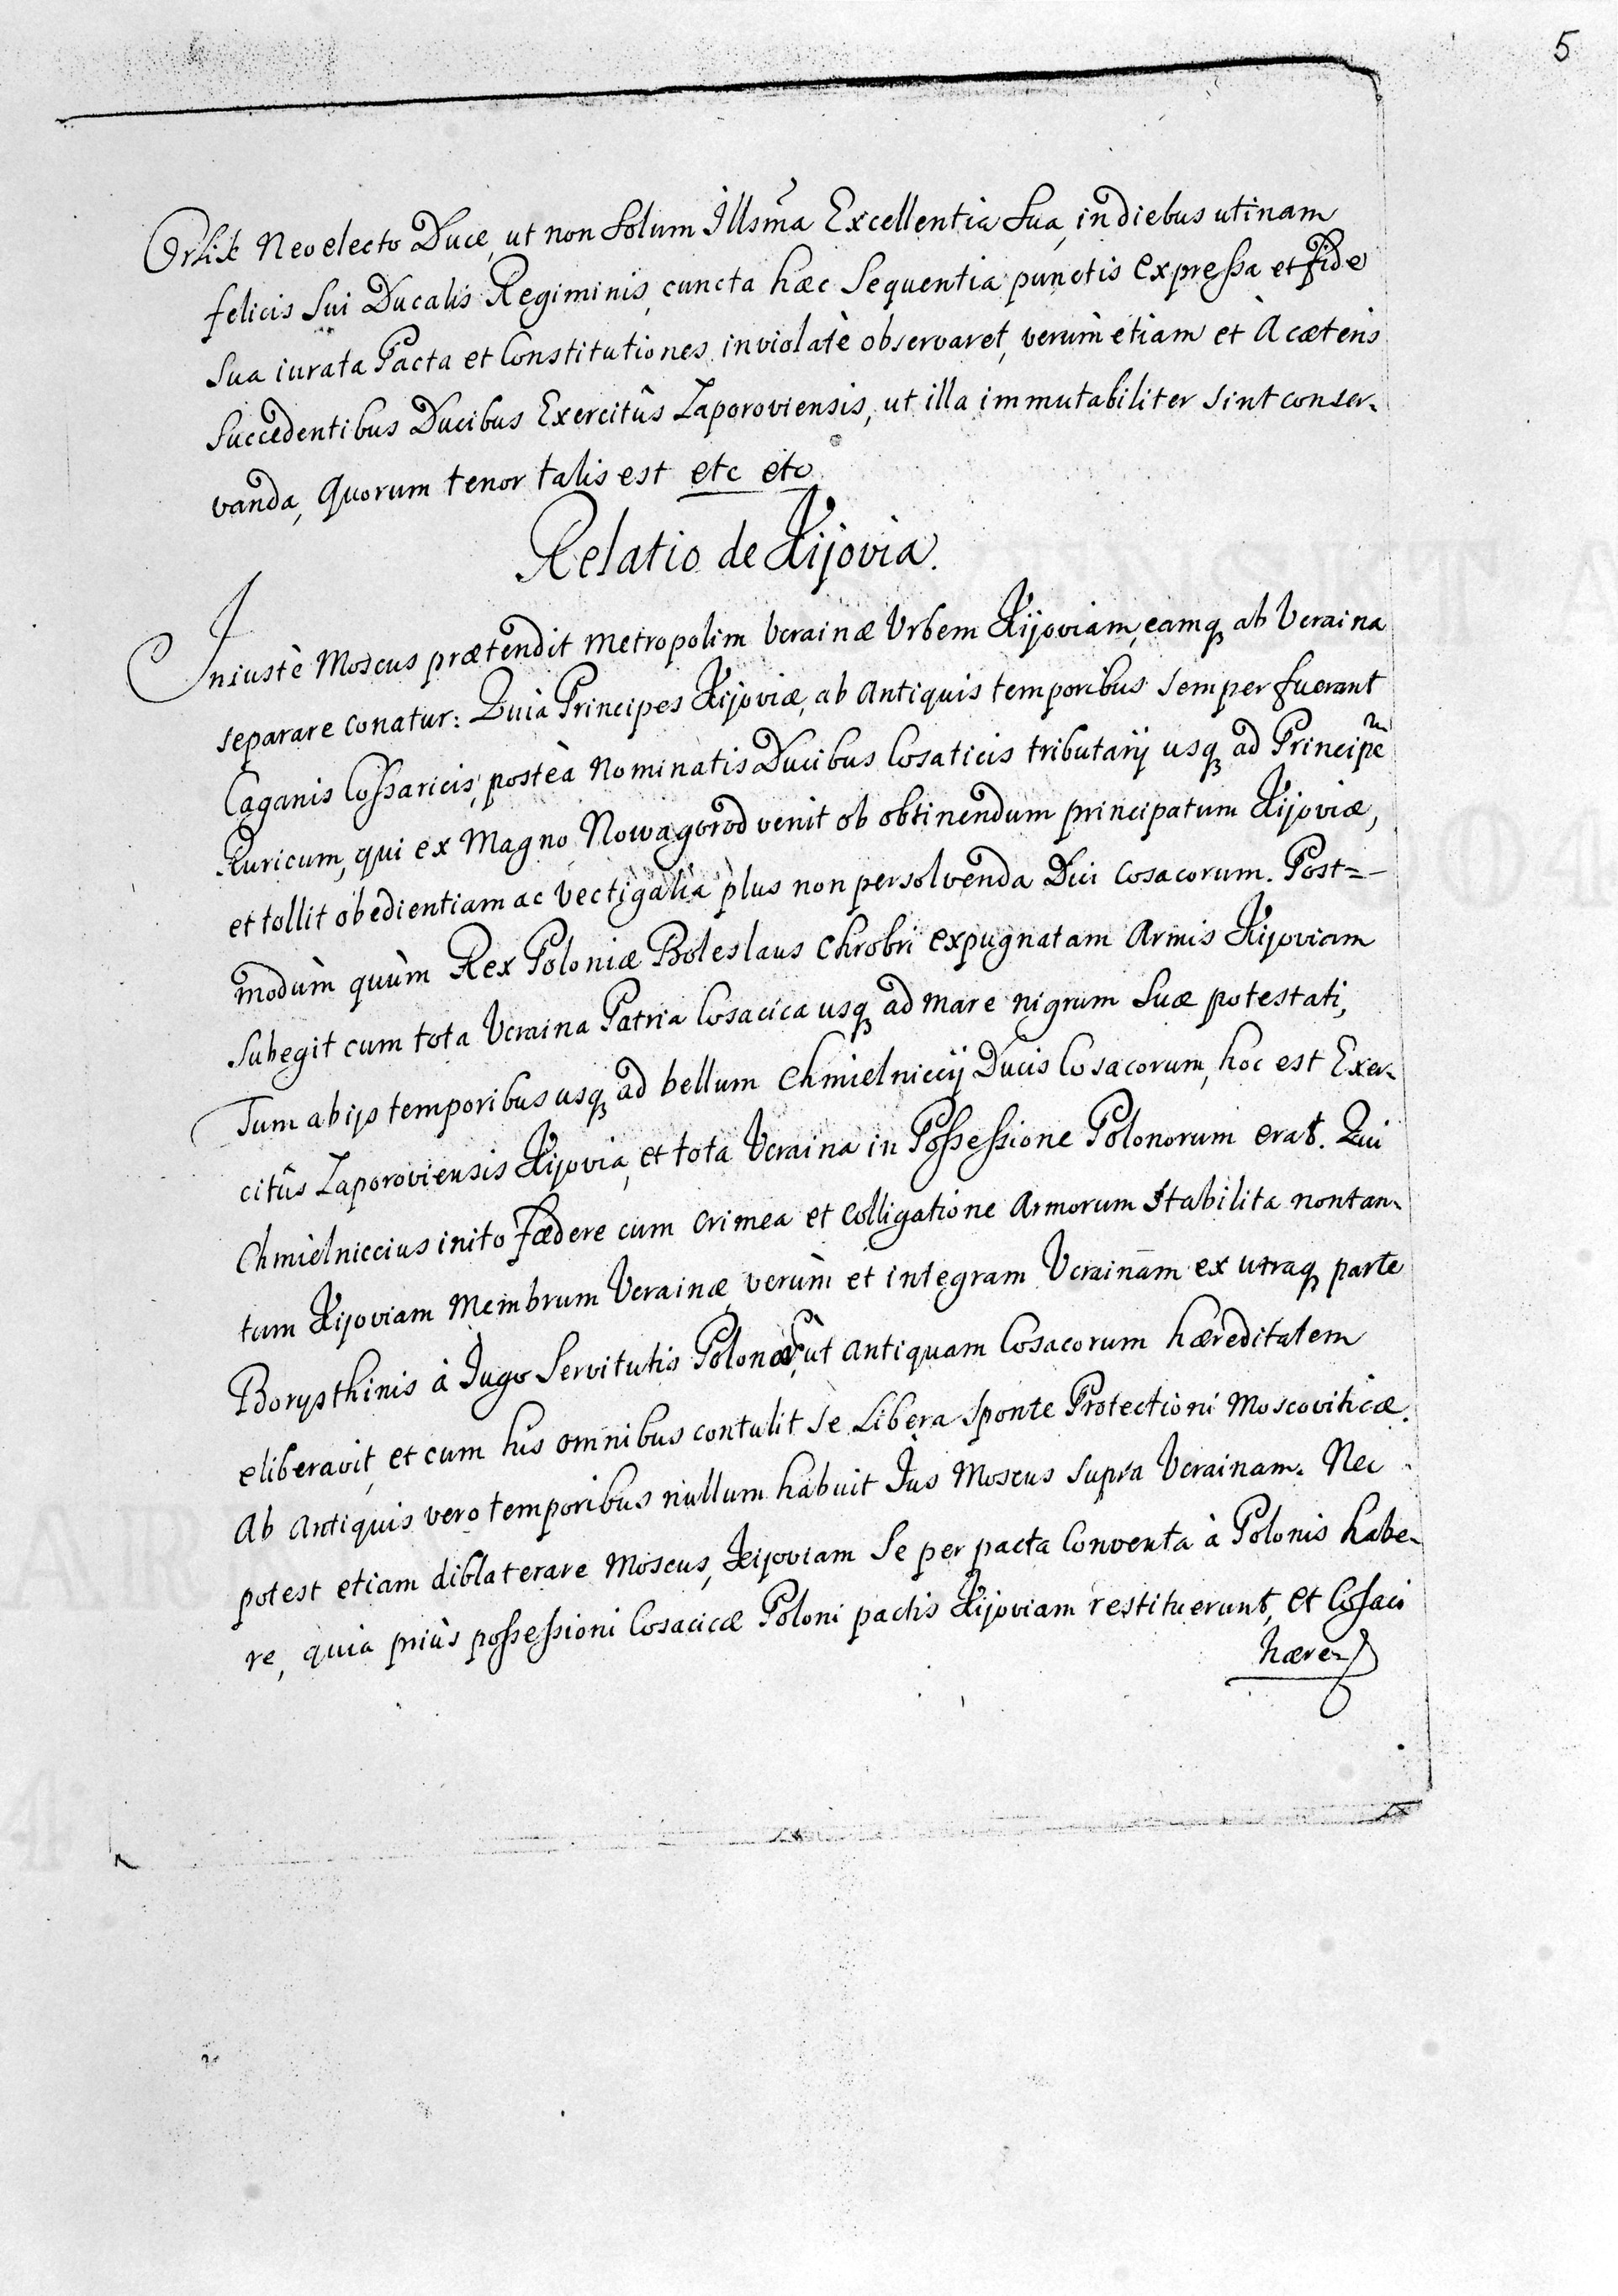 5
Orlik Neoelecto Duce, ut non solum Illsma Excellentia sua, in diebus utinam
felicis sui Ducalis Regiminis, cuncta hæc sequentia punctis expressa et fide
sua iurata Pacta et Constitutiones inviolatè observaret, verùm etiam et à cæteris
succedentibus Ducibus Exercitûs Zaporoviensis, ut illa immutabiliter sint conser-
vanda, quorum tenor talis est etc etc
Relatio de Kijovia.
Iniustè Moscus prætendit metropolim Ucrainæ Urbem Kijoviam, eamq ab Ucraina
separare conatur: Quia Principes Kijoviæ, ab antiquis temporibus semper fuerant
Caganis Cossaricis, posteà Nominatis Ducibus Cosaticis tributarij usq ad Principem
Ruricum, qui ex Magno Nowagorod venit ob obtinendum principatum Kijoviæ,
et tollit obedientiam ac vectigalia plus non persolvenda Duci Cosacorum. Post=
modùm quùm Rex Poloniæ Boleslaus Chrobri expugnatam Armis Kijoviam
subegit cum tota Ucraina Patria Cosacica usq ad mare nigrum suæ potestati,
Tum ab ijs temporibus usq ad bellum Chmielniccij Ducis Cosacorum, hoc est Exer-
citûs Zaporoviensis Kijovia, et tota Ucraina in Possessione Polonorum erat. Qui
Chmielniccius inito Fœdere cum Crimea et colligatione Armorum stabilita non tan-
tum Kijoviam Membrum Ucrainæ verùm et integram Ucrainam ex utraq parte
Borysthinis à Jugo Servitutis ut antiquam Cosacorum hæreditatem
eliberavit, et cum his omnibus contulit se Libera sponte Protectioni Moscoviticæ.
Ab Antiquis vero temporibus nullum habuit Jus Moscus supra Ucrainam. Nec
potest etiam diblaterare Moscus, Kijoviam se per pacta Conventa à Polonis habe-
re, quia priùs possessioni Cosacicæ Poloni pactis Kijoviam restituerunt, et Cosaci
hære-